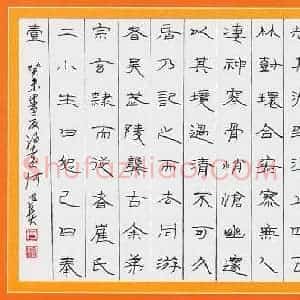 竹樹環合寂寥無人
淒神寒骨悄愴幽邃
以其境過清不可久
居乃記之而去同游
者吳武陵龔古余弟
宗玄隸而從者崔氏
二小生曰恕己曰奉
壹
癸未夏夜
Shufaziliao.Com